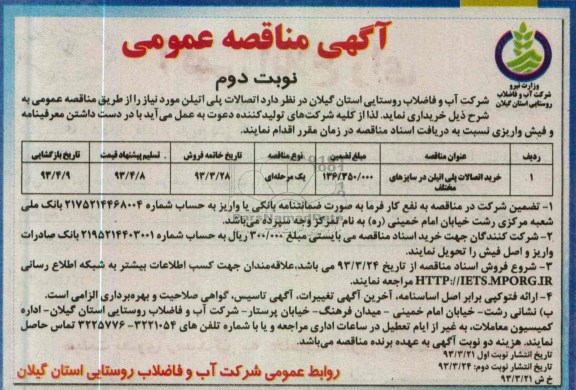 آگهی مناقصه عمومی
نوبت دوم
وزارت نیرو
شرکت آب و فاضلاب
روستایی استان گیلان
شرکت آب و فاضلاب روستایی استان گیلان در نظر دارد اتصالات پلی اتیلن مورد نیاز را از طریق مناقصه عمومی به
شرح ذیل خریداری نماید. لذا از کلیه شرکت‌های تولیدکننده دعوت به عمل می‌آید با در دست داشتن معرفینامه
و فیش واریزی نسبت به دریافت اسناد مناقصه در زمان مقرر اقدام نمایند.
ردیف عنوان مناقصه مبلغ تضمین نوع مناقصه تاریخ خاتمه فروش تسلیم پیشنهاد قیمت تاریخ بازگشایی
۱ خرید اتصالات پلی اتیلن در سایزهای مختلف ۱۳۶/۴۵۰/۰۰۰ یک مرحله‌ای ۹۳/۳/۲۸ ۹۳/۴/۸ ۹۳/۴/۹
۱- تضمین شرکت در مناقصه به نفع کار فرما به صورت ضمانتنامه بانکی یا واریز به حساب شماره ۲۱۷۵۲۱۴۴۶۸۰۰۴ بانک ملی
شعبه مرکزی رشت خیابان امام خمینی (ره) به نام تمرکز وجه سپرده می‌باشد.
۲- شرکت کنندگان جهت خرید اسناد مناقصه می بایستی مبلغ ۳۰۰/۰۰۰ ریال به حساب شماره ۲۱۹۵۲۱۴۴۰۳۰۰۱ بانک صادرات
واریز و اصل فیش را تحویل نمایند.
۳- شروع فروش اسناد مناقصه از تاریخ ۹۳/۳/۲۴ می باشد.علاقه‌مندان جهت کسب اطلاعات بیشتر به شبکه اطلاع رسانی
HTTP://IETS.MPORG.IR مراجعه نمایند.
۴- ارائه فتوکپی برابر اصل اساسنامه، آخرین آگهی تغییرات، آگهی تاسیس، گواهی صلاحیت و بهره‌برداری الزامی است.
ب) نشانی رشت- خیابان امام خمینی - میدان فرهنگ- خیابان پرستار- شرکت آب و فاضلاب روستایی استان گیلان- اداره
کمیسیون معاملات، به غیر از ایام تعطیل در ساعات اداری مراجعه و یا با شماره تلفن های ۳۲۲۱۰۵۴- ۳۲۲۵۷۷۶ تماس حاصل
نمایند. هزینه دو نوبت آگهی به عهده برنده مناقصه می‌باشد.
تاریخ انتشار نوبت اول ۹۳/۳/۲۱
تاریخ انتشار نوبت دوم: ۹۳/۳/۲۴
خ ش ۹۳/۳/۲۱
روابط عمومی شرکت آب و فاضلاب روستایی استان گیلان